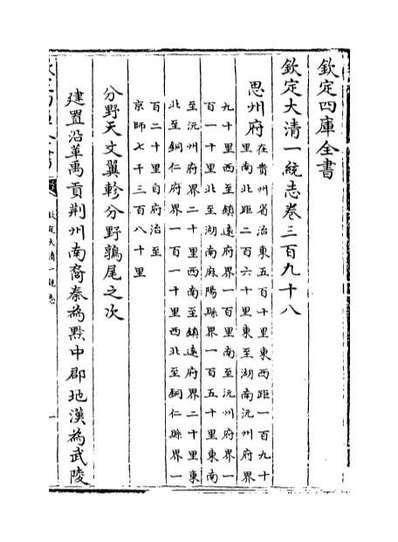 欽定四庫全書
欽定大清一統志卷三百九十八
思州府
在貴州省治東五百十里東西距一百九十
里南北距二百六十里東至湖南沅州府界
九十里西至鎮遠府界一百里南至沅州府界一
百一十里北至湖南麻陽縣界一百五十里東南
至沅州府界二十里西南至鎮遠府界二十里東
北至銅仁府界一百一十里西北至銅仁縣界一
百二十里自府治至
京師七千三百八十里
分野天文翼軫分野鶉尾之次
建置沿革禹貢荆州南裔秦為黔中郡地漢為武陵
欽定大清一統志